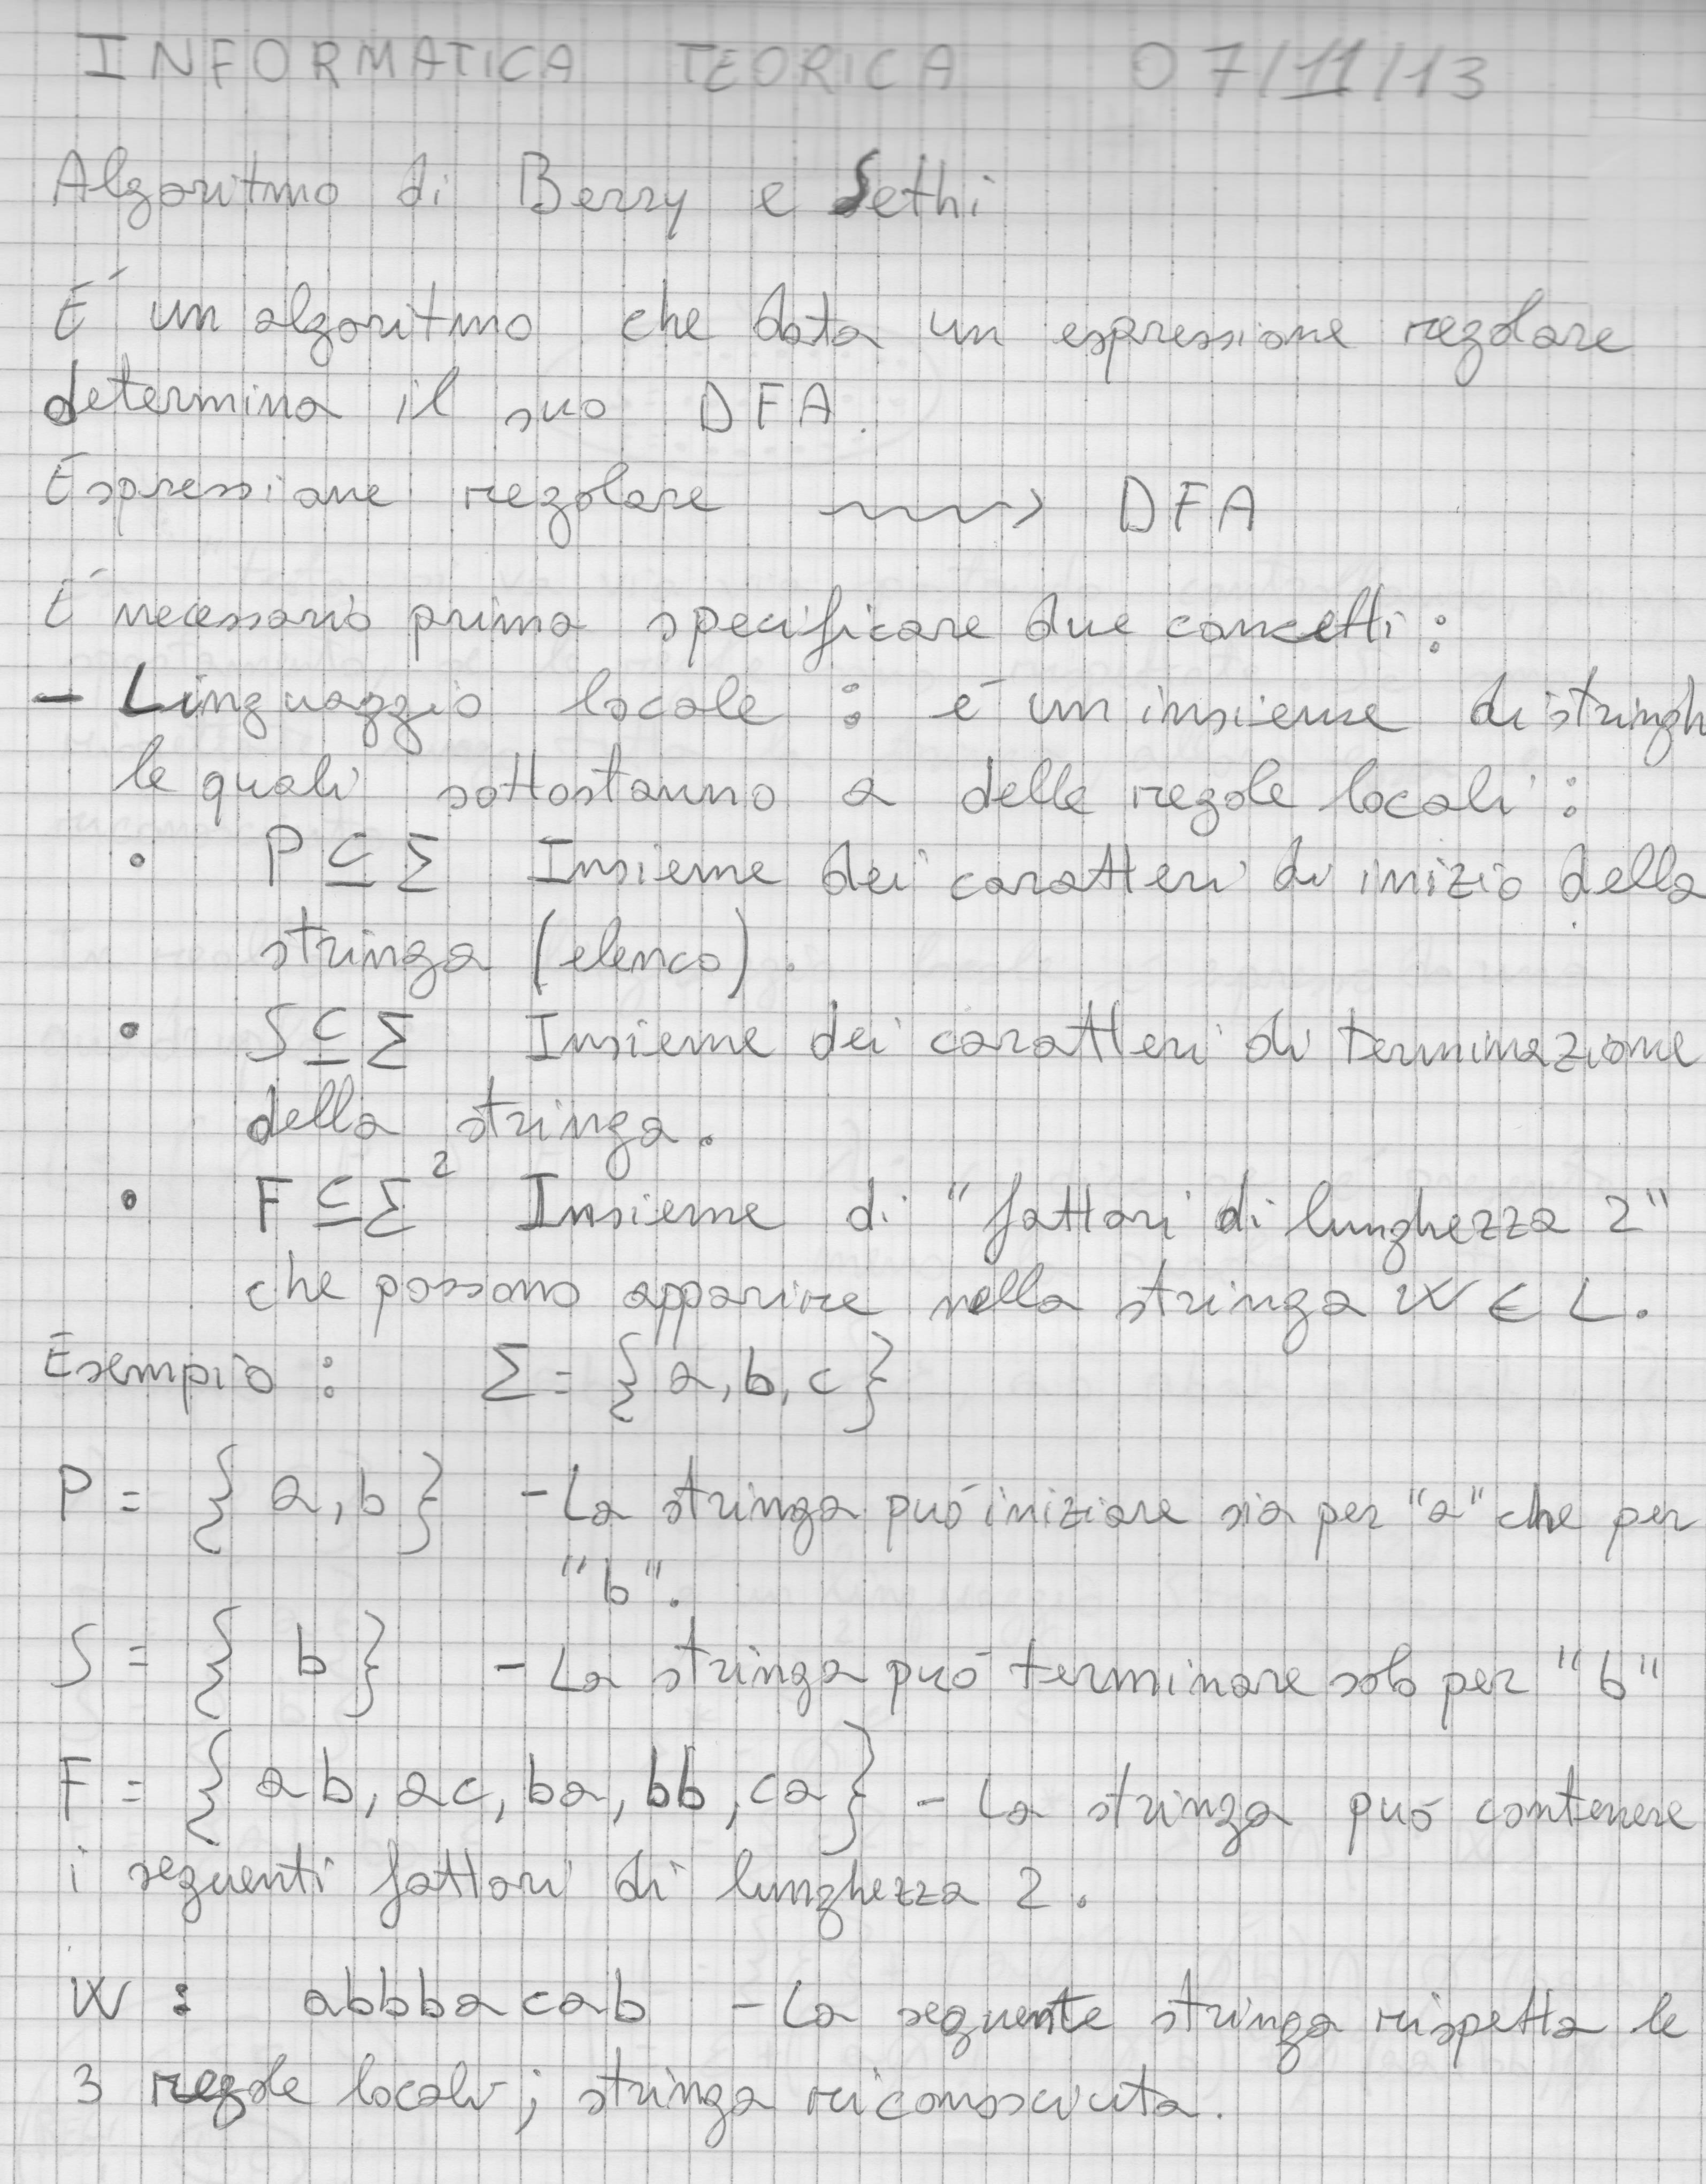 INFORMATICA TEORICA 07/11/13
Algoritmo di Berry e Sethi
É un algoritmo che data un espressione regolare
determina il suo DFA.
Espressione regolare ~~~> DFA
É necessario prima specificare due concetti:
- Linguaggio locale : é un insieme di stringh
le quali sottostanno a delle regole locali:
• P ⊆ Σ Insieme dei caratteri di inizio della
stringa (elenco).
• S ⊆ Σ Insieme dei caratteri di terminazione
della stringa.
• F ⊆ Σ² Insieme di "fattori di lunghezza 2"
che possono apparire nella stringa W ∈ L.
Esempio : Σ = {a, b, c}
P = {a, b} - La stringa puó iniziare sia per "a" che per
"b".
S = {b} - La stringa puó terminare solo per "b"
F = {ab, ac, ba, bb, ca} - La stringa puó contenere
i seguenti fattori di lunghezza 2.
W : abbbacab - La seguente stringa rispetta le
3 regole locali; stringa riconosciuta.